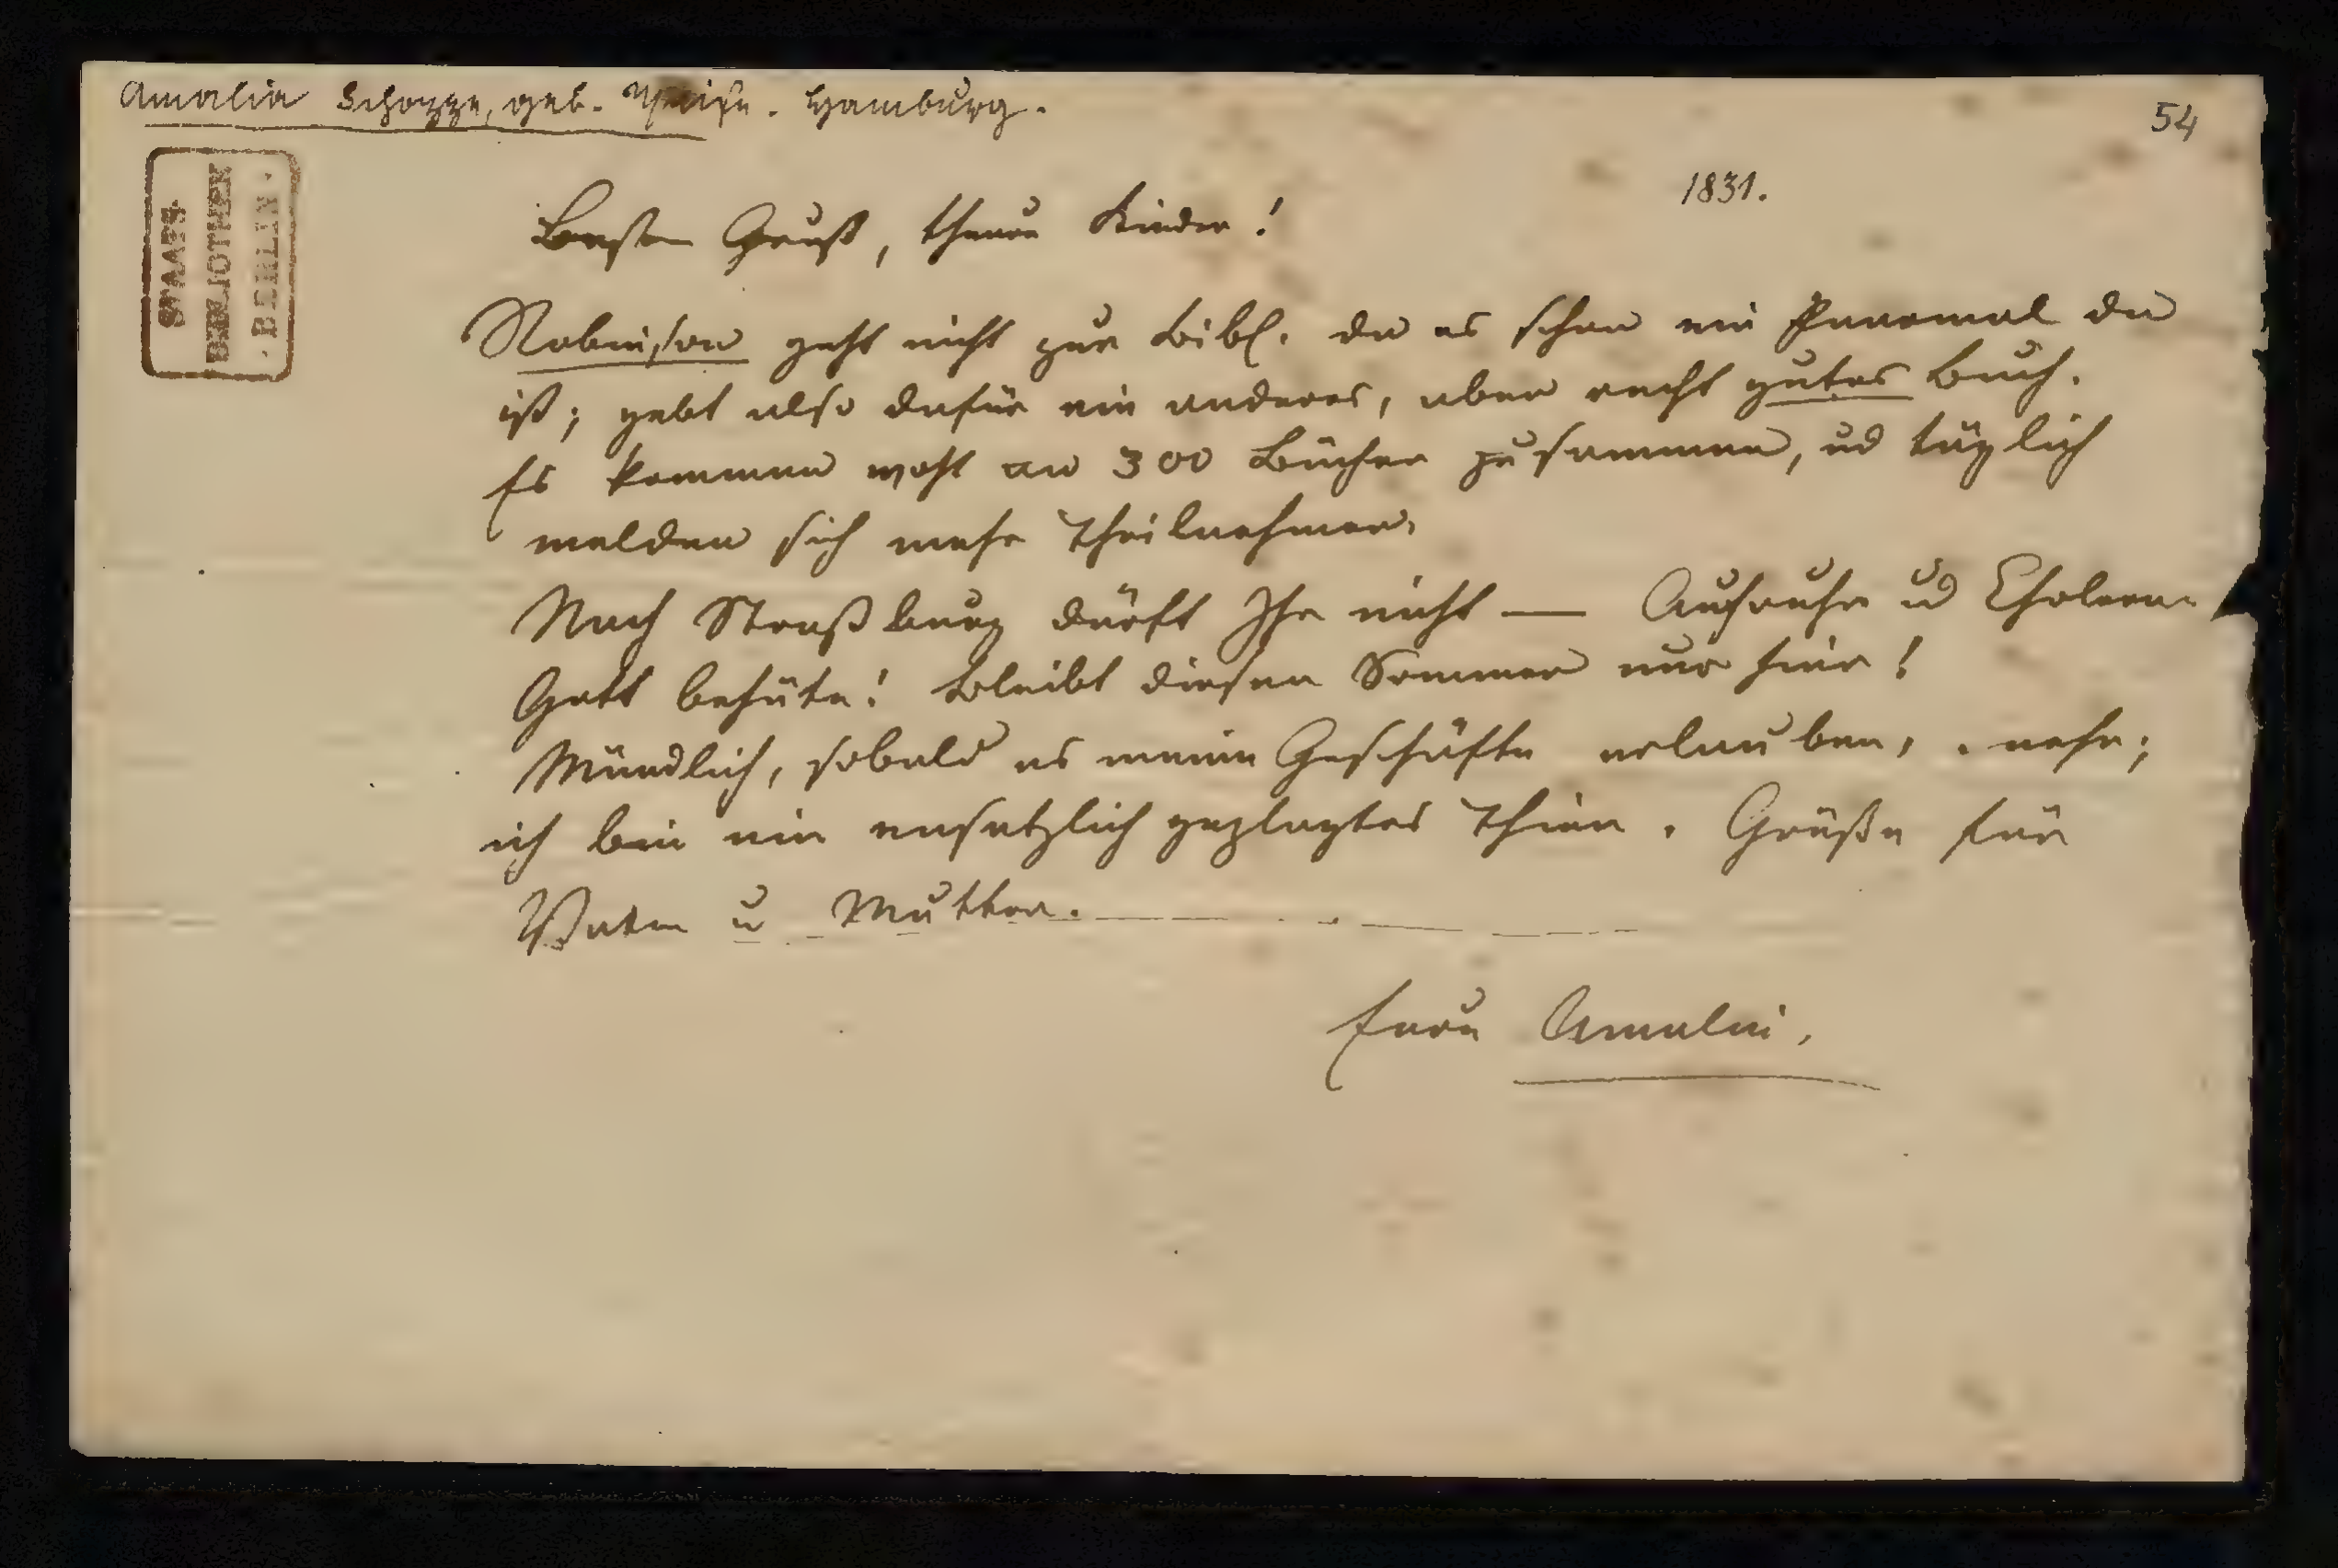 Amalia Schoppe, geb. Weise. Hamburg.
54
STAATS-
BIBLIOTHEK
· BERLIN ·
1831.
Besten Gruß, theure Kinder!
Robinson geht nicht zur Bibl. da es schon ein da
ist; gebt also dafür ein anderes, aber recht gutes Buch.
Es kommen wohl an 300 Bücher zusammen, ud täglich
melden sich mehr Theilnehmer.
Nach Straßburg dürft Ihr nicht — Aufruhr ud Cholera
Gott behüte! Bleibt diesen Sommer nur hier!
Mündlich, sobald es meine Geschäfte erlauben,
ich bin ein entsetzlich geplagtes Thier. Grüße für
Vater u Mutter.
Eure Amalie.